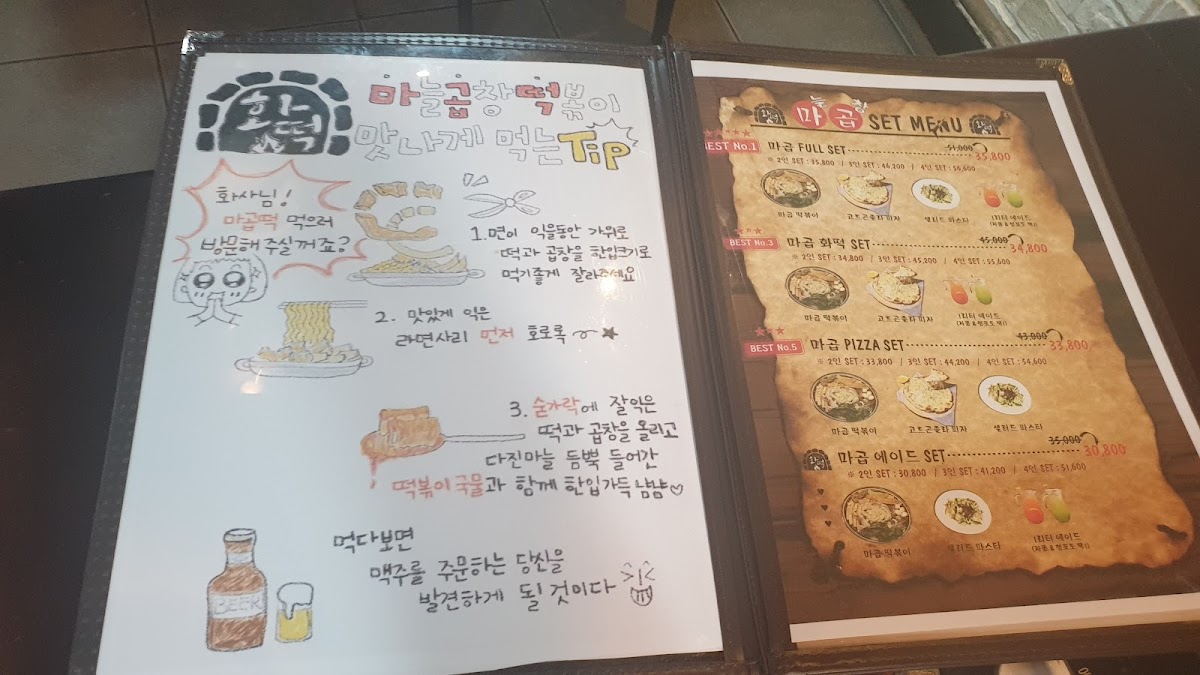 화떡
마늘곱창떡볶이
맛나게 먹는 Tip
화사님!
마곱떡 먹으러
방문해 주실꺼죠?
1. 면이 익을동안 가위로
떡과 곱창을 한입크기로
먹기좋게 잘라주세요
2. 맛있게 익은
라면사리 먼저 호로록
3. 숟가락에 잘익은
떡과 곱창을 올리고
다진마늘 듬뿍 들어간
떡볶이 국물과 함께 한입가득 냠냠♡
BEER
먹다보면
맥주를 주문하는 당신을
발견하게 될 것이다
마늘곱창 SET MENU
BEST No.1 마곱 FULL SET 51,000 35,800
※ 2인 SET : 35,800 / 3인 SET : 46,200 / 4인 SET : 56,600
마곱 떡볶이 고트곤졸라 피자 샐러드 파스타 1리터 에이드
(자몽 & 청포도 택1)
BEST No.3 마곱 화떡 SET 45,000 34,800
※ 2인 SET : 34,800 / 3인 SET : 45,200 / 4인 SET : 55,600
마곱 떡볶이 고트곤졸라 피자 1리터 에이드
(자몽 & 청포도 택1)
BEST No.5 마곱 PIZZA SET 43,000 33,800
※ 2인 SET : 33,800 / 3인 SET : 44,200 / 4인 SET : 54,600
마곱 떡볶이 고트곤졸라 피자 샐러드 파스타
마곱 에이드 SET 35,000 30,800
※ 2인 SET : 30,800 / 3인 SET : 41,200 / 4인 SET : 51,600
마곱 떡볶이 샐러드 파스타 1리터 에이드
(자몽 & 청포도 택1)